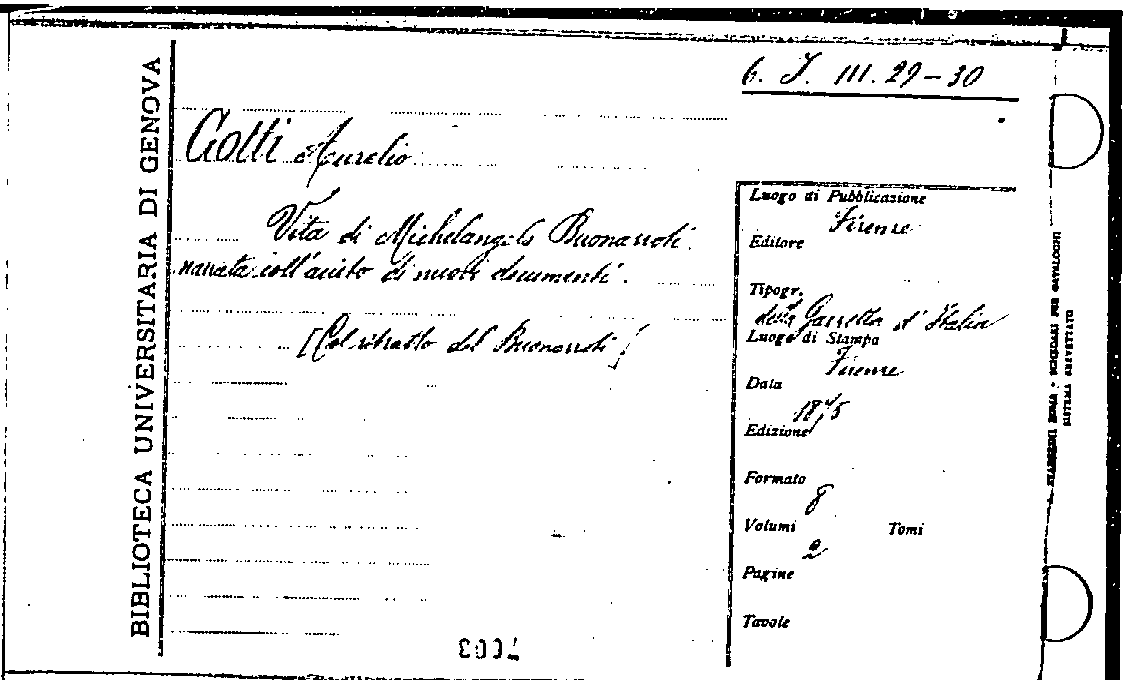 BIBLIOTECA UNIVERSITARIA DI GENOVA
6. J. III. 29-30
Gotti Aurelio
Vita di Michelangelo Buonarroti
narrata coll'aiuto di nuovi documenti.
[Col ritratto del Buonarroti]
Luogo di Pubblicazione
Firenze
Editore
Tipogr.
della Gazzetta d'Italia
Luogo di Stampa
Firenze
Data
1875
Edizione
Formato
8
Volumi Tomi
2
Pagine
Tavole
SISTEMA BREVETTATO